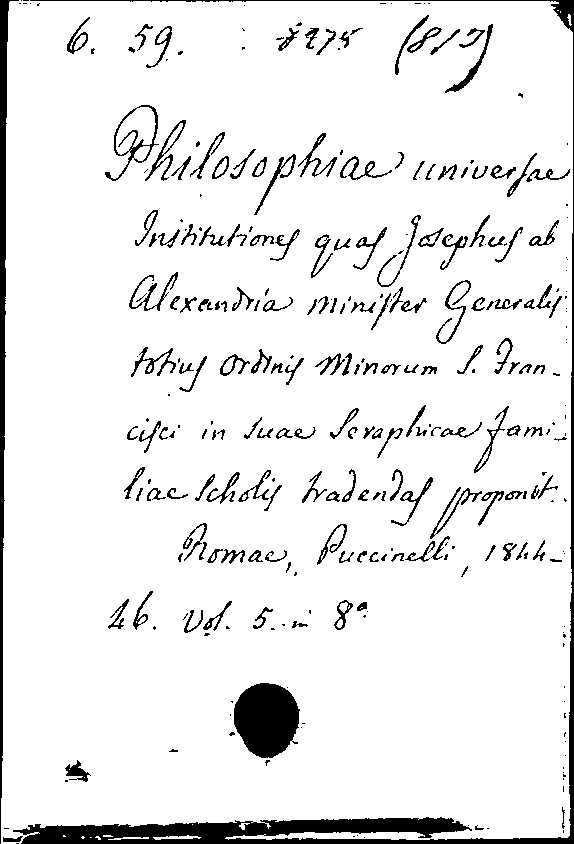 6. 59. 8275 (817)
Philosophiae universae
Institutiones quas Josephus ab
Alexandria minister Generalis
totius ordinis Minorum S. Fran-
cisci in suae Seraphicae fami-
liae Scholis tradendas proponit.
Romae, Puccinelli, 1844-
46. Vol. 5. in 8°